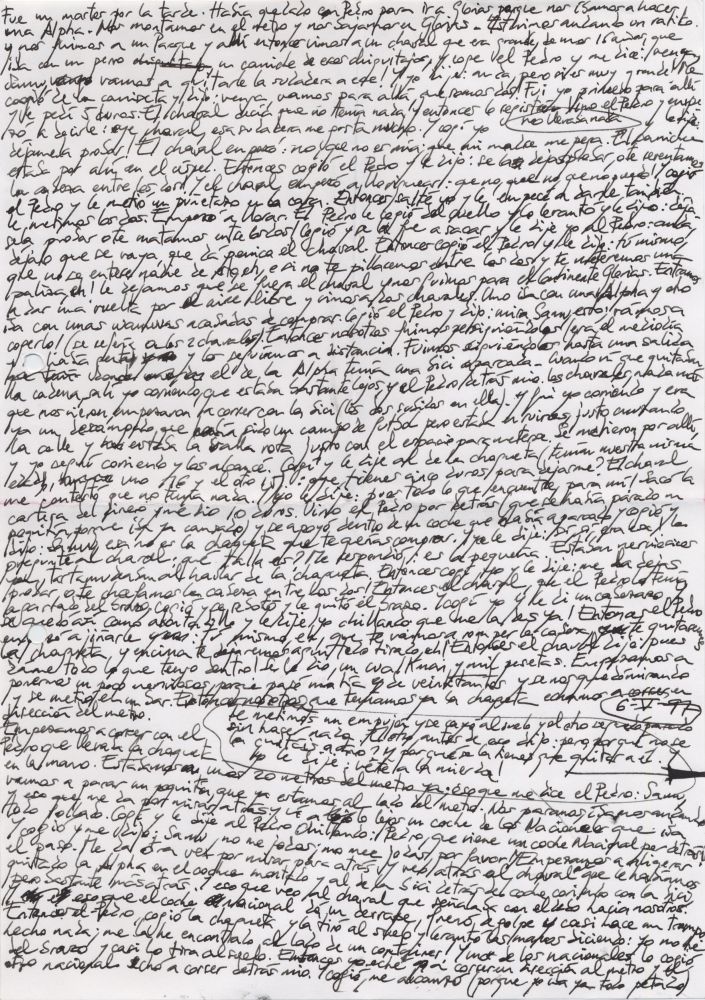 Fue un martes por la tarde. Había quedado con Pedro para ir a Glorias porque nos íbamos a hacer
una Alpha. Nos montamos en el metro y nos bajamos en Glorias. Estuvimos andando un ratito
y nos fuimos a un parque y allí entonces vimos a un chaval que era grande, de unos 15 años que
iba con un perro un caniche de esos chiquitajos, y coge el Pedro y me dice: venga
Samu, vamos a quitarle la sudadera a este! Y yo le dije: nunca, pero si es muy grande! Me
cogió de la camiseta y dijo: venga, vamos para allá que somos dos! Fui yo primero para allí
y le pedí 5 duros. El chaval decía que no tenía nada, y entonces lo registro. Vino el Pedro y empe-
zó a decirle: oye chaval, esa sudadera me gusta mucho. Y cogí yo no llevas nada y le dije:
déjamela probar! El chaval empezó: no que no es mía, que mi madre me pega. El caniche
estaba por ahí en el césped. Entonces cogió el Pedro y le dijo: se la dejas probar o te reventamos
la cabeza entre los dos! Y el chaval empezó a lloriquear: que no, que no, que no puedo! Cogió
el Pedro y le metió un puñetazo en la cara. Entonces salté yo y le empecé a dar también
le metimos los dos. Empezó a llorar. El Pedro le cogió del cuello y lo levantó y le dijo: déja-
sela probar o te matamos entre los dos! Cogió y se la fue a sacar y le dije yo al Pedro: anda,
déjalo que se vaya, que da pánico el chaval. Entonces cogió el Pedro y le dijo: tú mismo,
que no se entere nadie de aquí, eh, si no te pillaremos entre los dos y te meteremos una
paliza, eh! Le dejamos que se fuera el chaval y nos fuimos para el continente Glorias. Entramos
a dar una vuelta por el aire libre y vimos a dos chavales. Uno iba con una Alpha y otro
iba con unas wambas acabadas de comprar. Cogió el Pedro y dijo: mira Samu, esto! Vamos a
cogerlo! (se refería a los 2 chavales). Entonces nosotros fuimos persiguiéndolos (era el mediodía
y había gente) y los seguíamos a distancia. Fuimos siguiéndolos hasta una salida
el de la Alpha tenía una bici aparcada. Cuando vi que quitaban
la cadena, salí yo corriendo, que estaba bastante lejos y el Pedro detrás mío. Los chavales, nada más
que nos vieron, empezaron a correr con la bici (los dos subidos en ella) y fui yo corriendo y era
ya un descampado que había sido un campo de fútbol pero estaba en ruinas, justo cruzando
la calle y estaba la valla rota justo con el espacio para meterse. Se metieron por allí
y yo seguí corriendo y los alcancé. Cogí y le dije al de la chaqueta (tenían nuestra misma
edad, uno 16 y el otro 15): oye, tienes cinco duros para dejarme? El chaval
me contestó que no tenía nada. Y yo le dije: pues todo lo que encuentre para mí! Sacó la
cartera del dinero y me dio 10 duros. Vino el Pedro por detrás (que se había parado un
poquito porque iba ya cansado) y se apoyó dentro de un coche que había aparcado y cogió y
dijo: Samu, esa no es la chaqueta que te querías comprar? Y yo le dije: sí, sí, gracias! Y le
pregunté al chaval: qué talla es? Me respondió: es la pequeña. Estaban nerviosicos
y tartamudeaban al hablar de la chaqueta. Entonces cogí yo y le dije: me la dejas
probar, o te chafamos la cabeza entre los dos! Entonces el chaval, que el Pedro lo tenía
agarrado del brazo, cogió y pegó un bote y le quitó el brazo. Y cogí yo y le di un cabezazo y
se quedó así como abortado y le dije yo chillando que me la des ya! Entonces el Pedro
empezó a girarle y dijo: tú mismo, eh, que te vamos a romper la cabeza, te quitaremos
la chaqueta, y encima te dejaremos aquí todo tirado, eh! Entonces el chaval dijo: pues
dame todo lo que tengo dentro! Se le dio, un walkman, y mil pesetas. Empezamos a
ponernos un poco nerviosos, porque pasó un tío de veintitantos y se nos quedó mirando
y se metió en un bar. Entonces nosotros que teníamos ya la chaqueta echamos a correr en
dirección del metro. 6-V-97
le metimos un empujón y se cayó al suelo y el otro se quedó parado
Empezamos a correr con el sin hacer nada. El otro antes de eso dijo: pero por qué no se
Pedro que llevaba la chaqueta la quitáis a otro? Y por qué se la tienes que quitar a él? Y
en la mano. yo le dije: vete a la mierda!
Estábamos a unos 20 metros del metro ya, eso que me dice el Pedro: Samu,
vamos a parar un poquito que ya estamos al lado del metro. Nos paramos, íbamos andando
y eso que me da por mirar atrás y veo a lo lejos un coche de los Nacionales que iba
todo follado. Cogí y le dije al Pedro chillando: Pedro, que viene un coche Nacional por detrás!
Y cogió y me dijo: Samu, no me jodas; no me jodas, por favor! Empezamos a aligerar
el paso. Me da otra vez por mirar para atrás y veo atrás al chaval que le habíamos
quitado la Alpha en el coche montado y al de la bici detrás del coche, corriendo con la bici
pero bastante más atrás. Y eso que veo al chaval que señalaba con el dedo hacia nosotros.
Y eso que el coche Nacional da un derrape, y frenó de golpe y casi hace un trompo.
Entonces el Pedro, cogió la chaqueta y la tiró al suelo y levantó las manos diciendo: yo no he
hecho nada; me la he encontrado al lado de un container! Y uno de los nacionales lo cogió
del brazo y casi lo tira al suelo. Entonces yo eché a correr en dirección al metro y el
otro nacional echó a correr detrás mío. Y cogió, me alcanzó (porque yo iba ya todo petado)